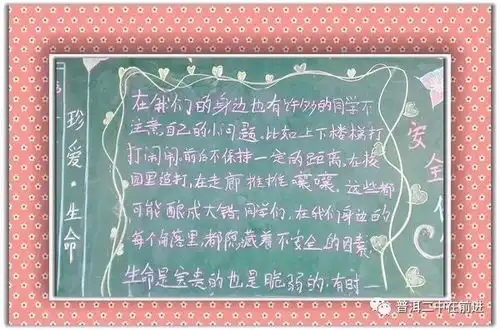 珍爱·生命
在我们的身边也有许多的同学不
注意自己的小问题.比如上下楼梯打
打闹闹,前后不保持一定的距离,在校
园里追打,在走廊推推嚷嚷.这些都
可能酿成大错,同学们,在我们身边的
每个角落里,都隐藏着不安全的因素.
生命是宝贵的也是脆弱的.有时一
安全
普洱二中在前进